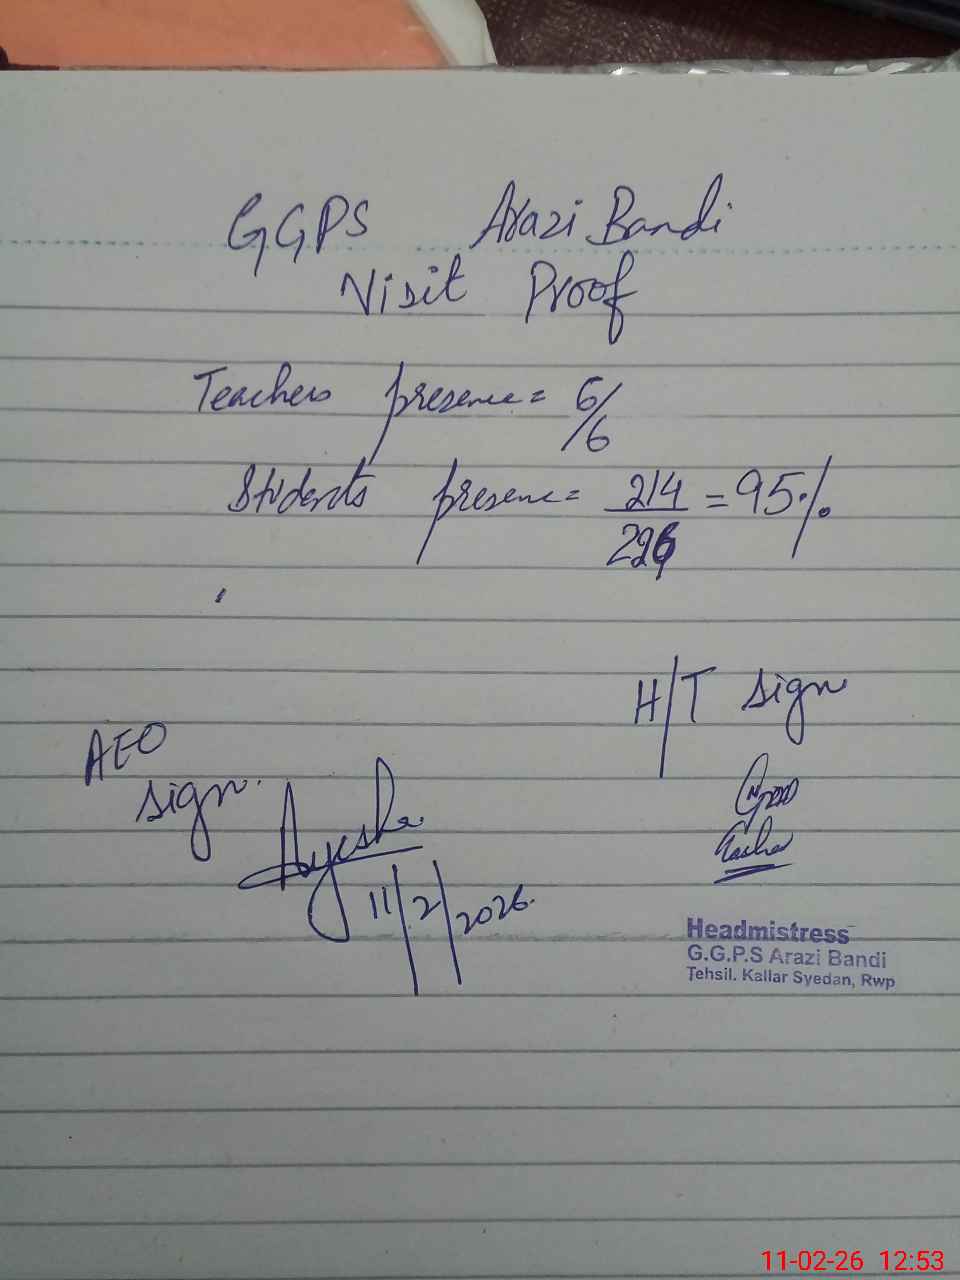 GGPS Arazi Bandi
Visit Proof
Teachers presence = 6/6
Students presence = 214/226 = 95%
H/T Sign
AEO
Sign.
Ayesha
11/2/2026.
Headmistress
G.G.P.S Arazi Bandi
Tehsil. Kallar Syedan, Rwp
11-02-26 12:53